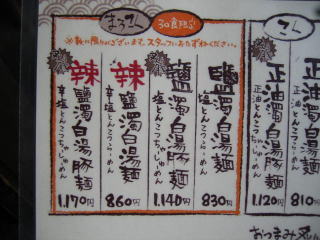 まろこん
30食限定
※数に限りがございます。スタッフにおたずねください。
鹽濁白湯麺
塩とんこつらーめん
830円
鹽濁白湯豚麺
塩とんこつちゃーしゅーめん
1,140円
辣鹽濁白湯麺
辛塩とんこつらーめん
860円
辣鹽濁白湯豚麺
辛塩とんこつちゃーしゅーめん
1,170円
正油濁白湯
正油とんこつらーめん
810
正油濁白湯豚麺
正油とんこつちゃーしゅーめん
1,120円
おつまみ